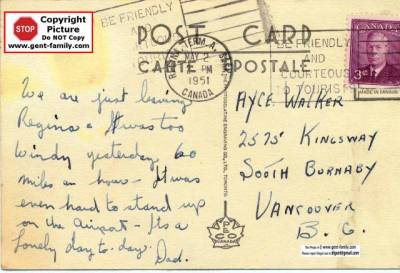 Copyright
Picture
Do NOT Copy
www.gent-family.com
STOP
BE FRIENDLY
AND
POST CARD
CARTE POSTALE
REGINA TERM. A. SASK.
MAY 2
PM
1951
CANADA
BE FRIENDLY
AND
COURTEOUS
TO TOURISTS
CANADA
3¢
We are just leaving
Regina & it was too
windy yesterday, 60
miles an hour - it was
even hard to stand up
on the airport - It's a
lovely day to-day.
Dad.
AYCE WALKER
2575 KINGSWAY
SOUTH BURNABY
VANCOUVER
B.C.
PECO
CANADA
www.gent-family.com